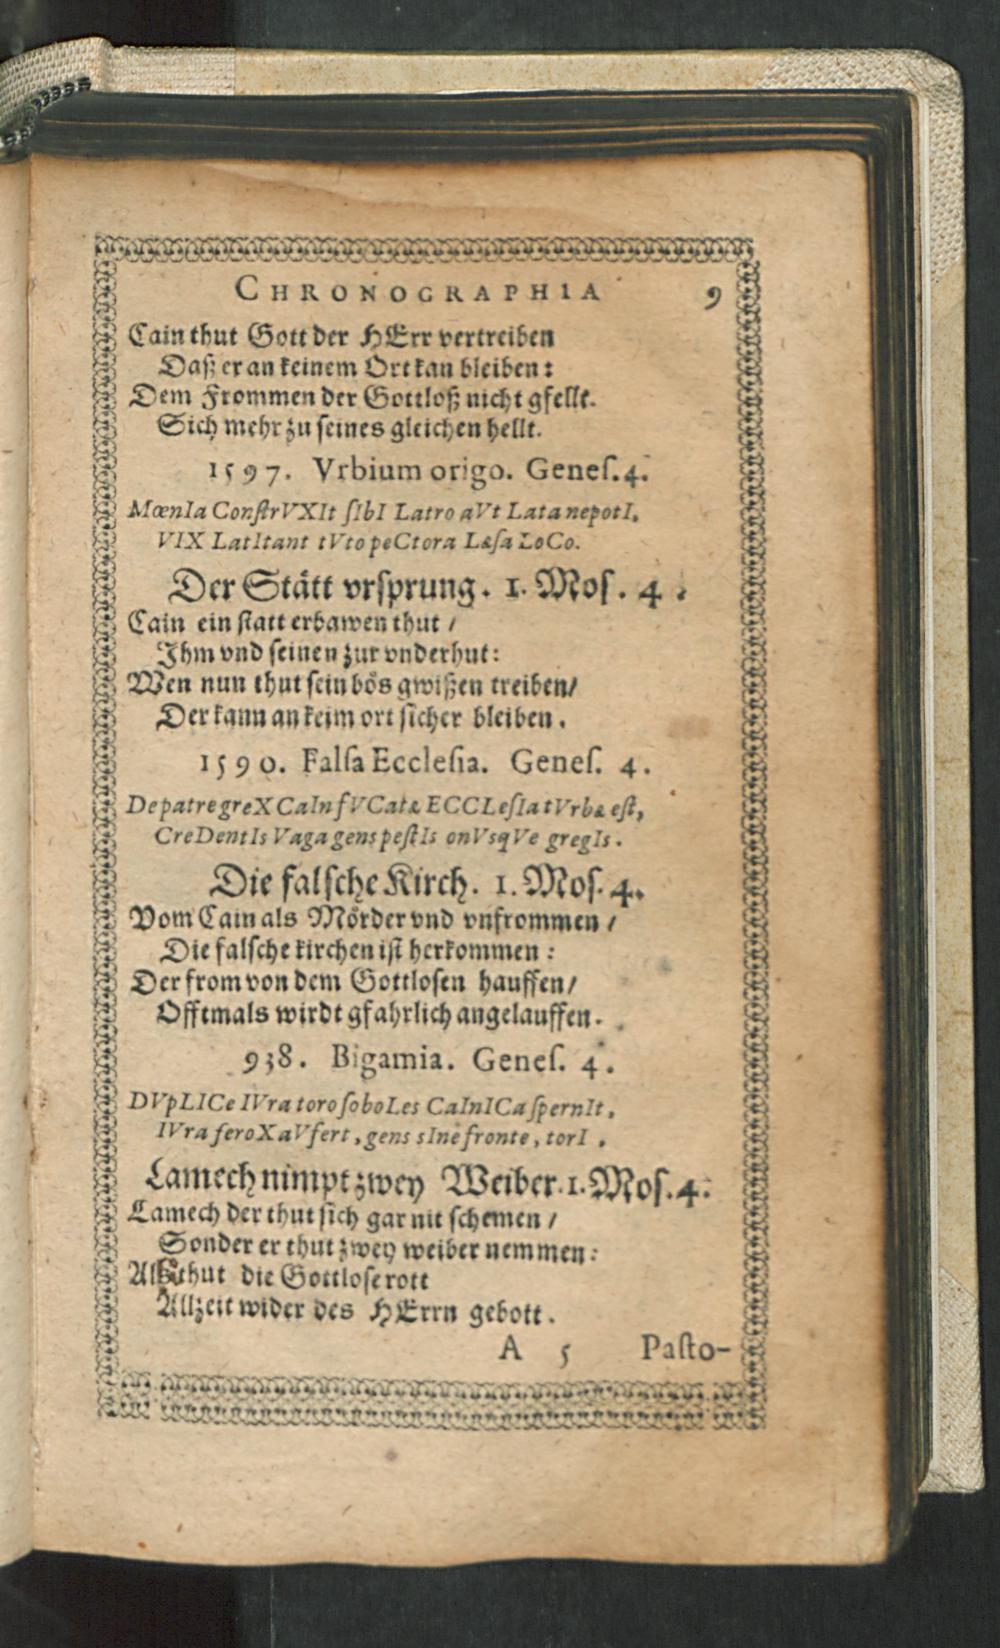 CHRONOGRAPHIA 9
Cain thut Gott der HErr vertreiben
Daß er an keinem Ort kan bleiben:
Dem Frommen der Gottloß nicht gfellt.
Sich mehr zu seines gleichen hellt.
1597. Vrbium origo. Geneſ. 4.
MœnIa ConſtrVXIt ſIbI Latro aVt Lata nepotI,
VIX LatItant tVto peCtora Læſa LoCo.
Der Stätt vrſprung. 1. Moſ. 4.
Cain ein ſtatt erbawen thut /
Ihm vnd ſeinen zur vnderhut:
Wen nun thut ſein bös gwißen treiben/
Der kann an keim ort ſicher bleiben.
1590. Falſa Eccleſia. Geneſ. 4.
De patre greX CaInfVCatæ ECCLeſIa tVrbæ eſt,
CreDentIs Vaga gens peſtIs onVsqVe gregIs.
Die falſche Kirch. 1. Moſ. 4.
Vom Cain als Mörder vnd vnfrommen /
Die falſche kirchen iſt herkommen:
Der from von dem Gottloſen hauffen/
Offtmals wirdt gfahrlich angelauffen.
938. Bigamia. Geneſ. 4.
DVpLICe IVra toro ſoboLes CaInICa ſpernIt,
IVra feroX aVfert, gens sIne fronte, torI.
Lamech nimpt zwey Weiber. 1. Moſ. 4.
Lamech der thut ſich gar nit ſchemen /
Sonder er thut zwey weiber nemmen:
thut die Gottloſe rott
Allzeit wider des HErrn gebott.
A 5 Paſto-